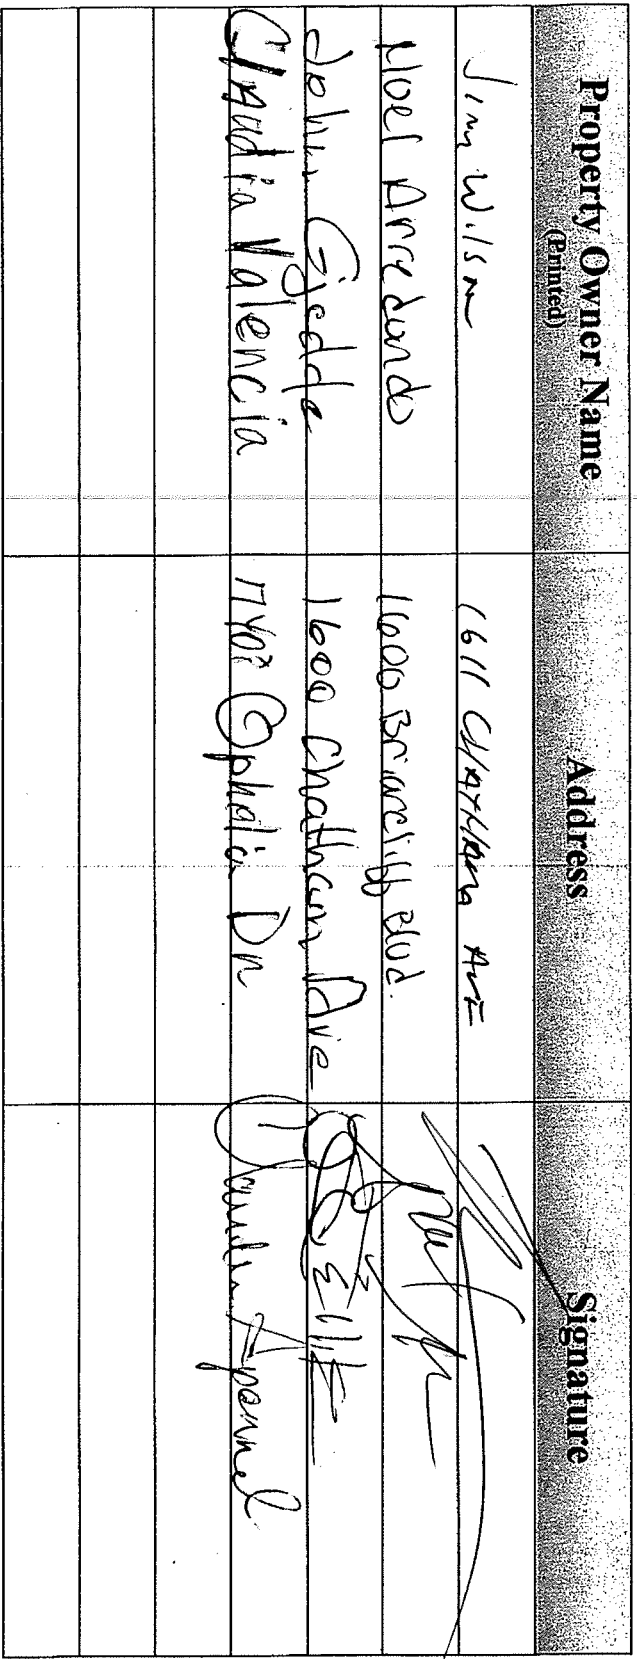 Property Owner Name Address Signature
(Printed)
Jim Wilson 1611 CHATHAM AVE
Noel Arredondo 1600 Briarcliff Blvd.
John Gjedde 1600 Chatham Ave
Claudia Valencia Ophelia Dr